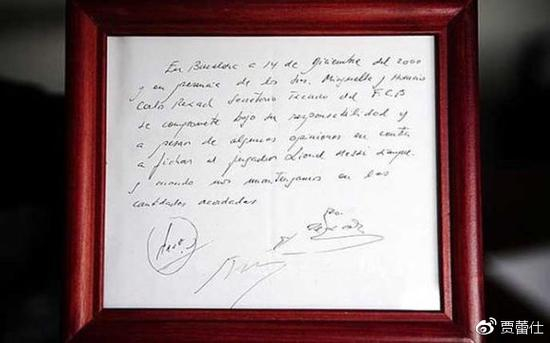 En Barcelona a 14 de Diciembre del 2000
y en presencia de los Sres. Minguella y Horacio
Carlo Rexach Secretario Tecnico del F.C.B
se compromete bajo su responsabilidad y
a pesar de algunas opiniones en contra
a fichar al jugador Lionel Messi siempre
y cuando nos mantengamos en las
cantidades acordadas
@贾蕾仕